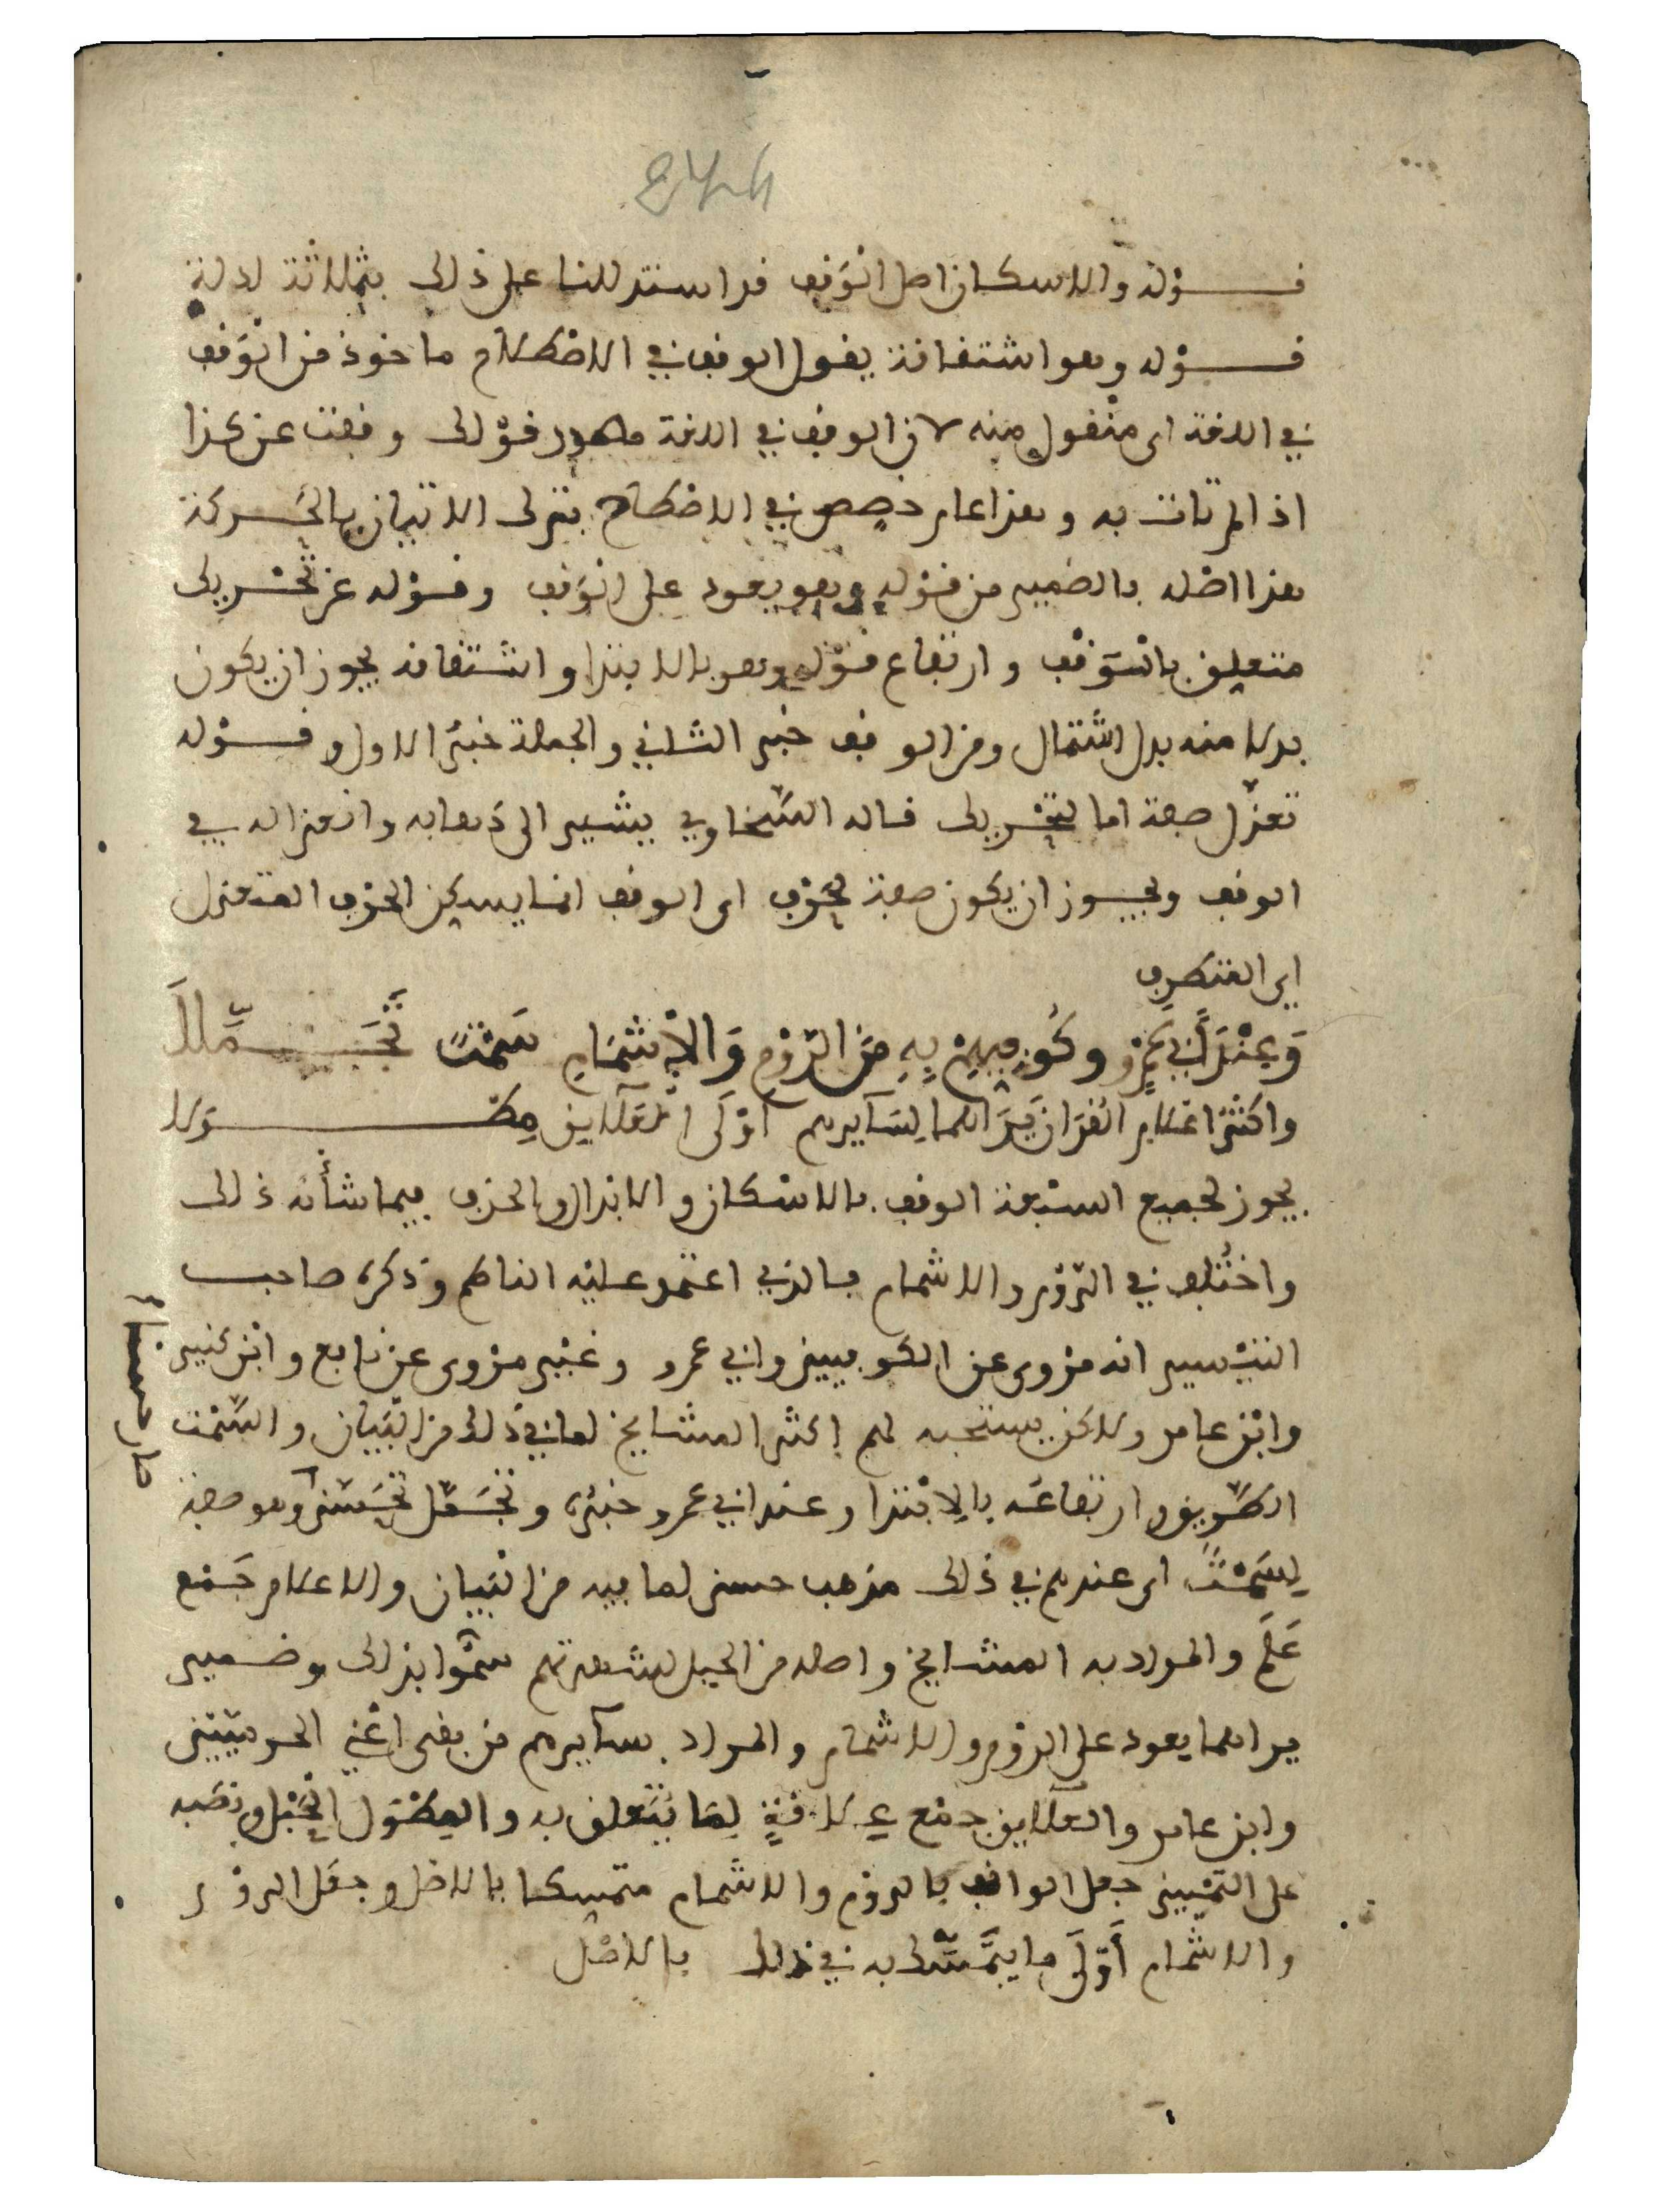 قوله والاسكان اصل الوقف قد استدللنا على ذلك بثلاثة ادلة
قوله وهو اشتقاقه يقول الوقف في الاصطلاح ماخوذ من الوقف
في اللغة اى منقول منه لان الوقف في اللغة مصدر قولك وقفت عن كذا
اذا لم تات به وهذا عام خصص في الاصطلاح بترك الاتيان بالحركة
هذا اصله بالضمير من قوله وهو يعود على الوقف وقوله عن تحريك
متعلق بالوقف وارتفاع قوله وهو بالابتدا واشتقاقه يجوز ان يكون
بدلا منه بدل اشتمال ومن الوقف خبر الثاني والجملة خبر الاول وقوله
تعزل صفة اما لتحريك قاله السخاوي يشير الى ذهابه وانعزاله في
الوقف ويجوز ان يكون صفة لحرف اى الوقف انما يسكن الحرف المتعزل
اى المتطرف
وَعِنْدَ أَبِي عَمْرٍو وكُوفِيِّهِمْ بِهِ مِنَ الرَّوْمِ وَالْإِشْمَامِ سَمْتٌ تَجَمَّلَا
واكثر اعلام القران يَرَاهما لِسَائرهم أَوْلَى العَلَائق مِطْوَلا
يجوز لجميع السبعة الوقف بالاسكان والابدال والحذف فيما شأنه ذلك
واختُلف في الرَّوْم والاشمام فالذي اعتمد عليه الناظم وذكره صاحب
التيسير انه مروى عن الكوفيين وابي عمرو وغير مروى عن نافع وابن كثير
وابن عامر ولاكن يستحبه لهم اكثر المشايخ لما في ذلك من البيان والسَّمْت
الطريق وارتفاعُه بالابتدا وعند ابي عمرو خبره وتجمّل تحسّن وهو صفة
لِسَمْتٌ اى عندهم في ذلك مذهب حسن لما فيه من البيان والاعلام جَمْع
عَلَم والمراد به المشايخ واصله من الجبل لشهرتهم سمّوا بذلك وضمير
يراهما يعود على الروم والاشمام والمراد بسائرهم من بقى اعْنِي الحرميّين
وابن عامر والعلايق جمْع عِلَاقةٍ لِمَا يُتَعلق به والمِطْوَل الحَبْل ونصبه
على التمييز جعل الواقف بالروم والاشمام متمسكا بالاصل وجعل الروم
والاشمام أَوْلَى ما يتمسّك به في ذلك بالاصل